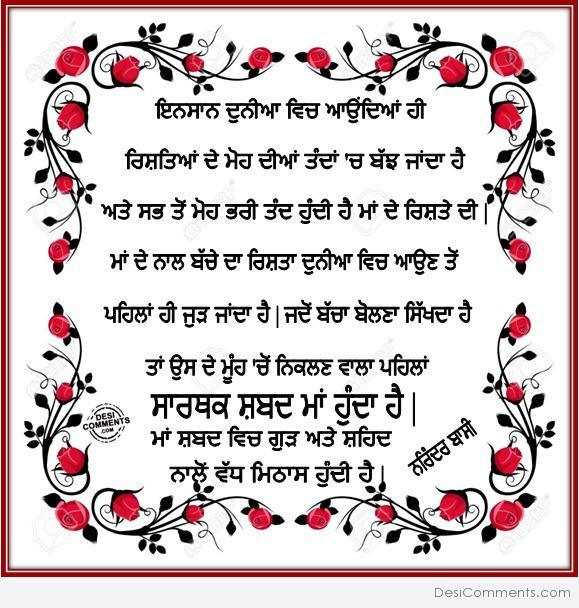 ਇਨਸਾਨ ਦੁਨੀਆ ਵਿਚ ਆਉਂਦਿਆਂ ਹੀ
ਰਿਸ਼ਤਿਆਂ ਦੇ ਮੋਹ ਦੀਆਂ ਤੰਦਾਂ 'ਚ ਬੱਝ ਜਾਂਦਾ ਹੈ
ਅਤੇ ਸਭ ਤੋਂ ਮੋਹ ਭਰੀ ਤੰਦ ਹੁੰਦੀ ਹੈ ਮਾਂ ਦੇ ਰਿਸ਼ਤੇ ਦੀ |
ਮਾਂ ਦੇ ਨਾਲ ਬੱਚੇ ਦਾ ਰਿਸ਼ਤਾ ਦੁਨੀਆ ਵਿਚ ਆਉਣ ਤੋਂ
ਪਹਿਲਾਂ ਹੀ ਜੁੜ ਜਾਂਦਾ ਹੈ | ਜਦੋਂ ਬੱਚਾ ਬੋਲਣਾ ਸਿੱਖਦਾ ਹੈ
ਤਾਂ ਉਸ ਦੇ ਮੂੰਹ 'ਚੋਂ ਨਿਕਲਣ ਵਾਲਾ ਪਹਿਲਾਂ
ਸਾਰਥਕ ਸ਼ਬਦ ਮਾਂ ਹੁੰਦਾ ਹੈ |
ਮਾਂ ਸ਼ਬਦ ਵਿਚ ਗੁੜ ਅਤੇ ਸ਼ਹਿਦ
ਨਾਲੋਂ ਵੱਧ ਮਿਠਾਸ ਹੁੰਦੀ ਹੈ |
ਨਰਿੰਦਰ ਬਾਸੀ
DESI
COMMENTS
.COM
DesiComments.com